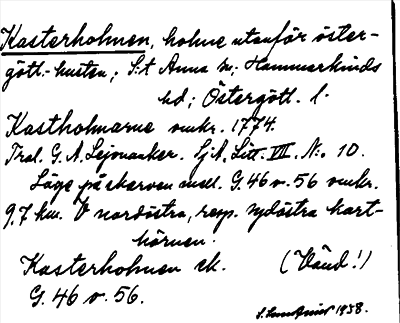 Kasterholmen, holme utanför öster-
götl.-kusten; S:t Anna sn; Hammarkinds
hd; Östergötl. l.
Kastholmarne omkr. 1774.
Tral. G. A. Lejonanker. Sj.A, Litt. VII. N:o 10.
Läge på skarven mell. G.46 o. 56 omkr.
9,7 km. V nordöstra, resp. sydöstra kart-
hörnen.
Kasterholmen ek. (Vänd!)
G. 46 o. 56.
1938.